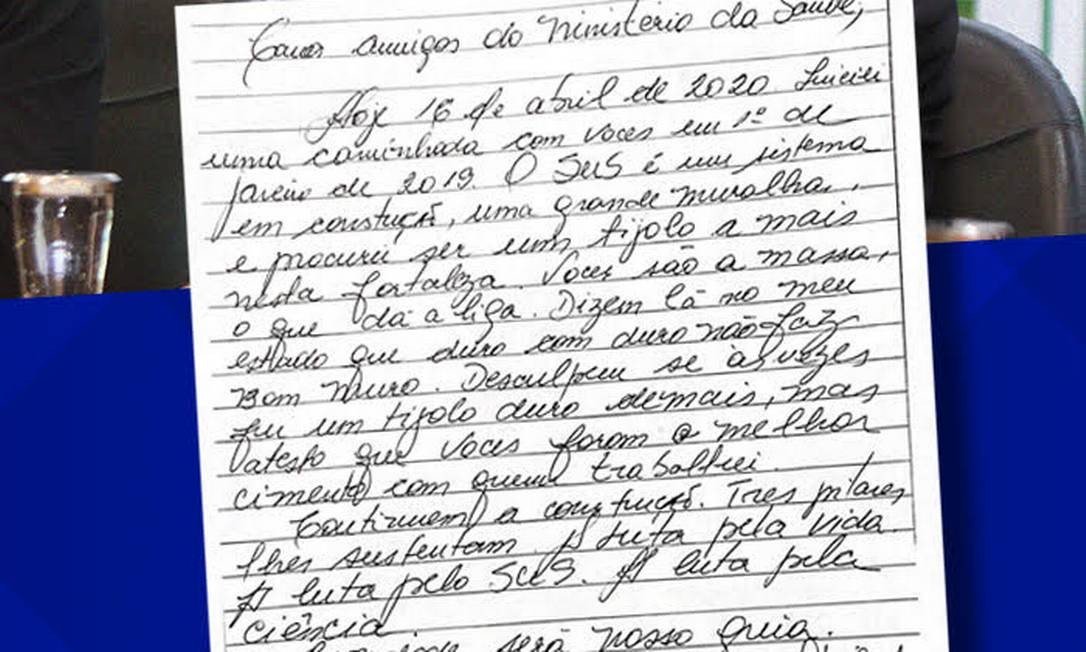 Caros amigos do Ministério da Saúde,
Hoje 16 de abril de 2020. Iniciei
uma caminhada com voces em 1º de
janeiro de 2019. O SUS é um sistema
em construção, uma grande muralha,
e procurei ser um tijolo a mais
nesta fortaleza. Voces são a massa,
o que dá a liga. Dizem lá no meu
estado que duro com duro não faz
Bom muro. Desculpem se às vezes
fui um tijolo duro demais, mas
atesto que voces foram o melhor
cimento com quem trabalhei.
Continuem a construção. Tres pilares
lhes sustentam. A luta pela vida.
A luta pelo SUS. A luta pela
ciência.
será nosso guia.